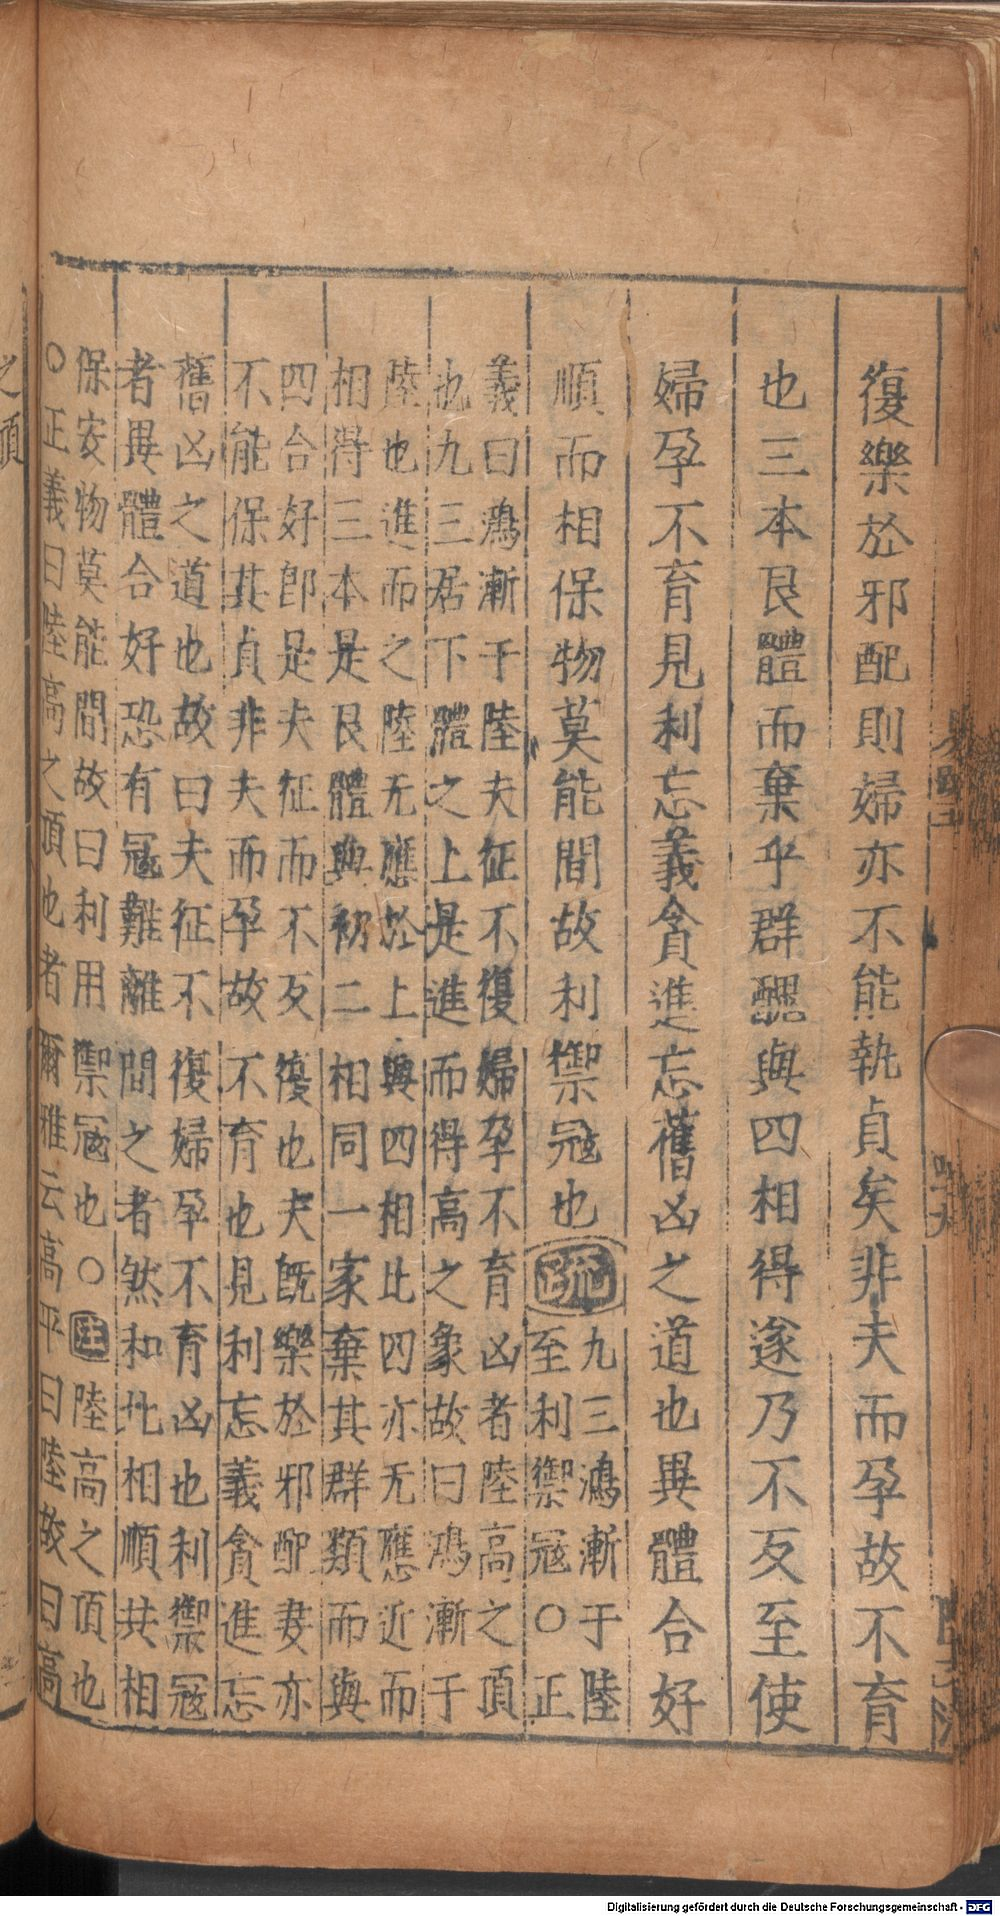 復樂於邪配則婦亦不能執貞矣非夫而孕故不育
也三本艮體而棄乎群醜與四相得遂乃不反至使
婦孕不育見利忘義貪進忘舊凶之道也異體合好
順而相保物莫能間故利禦冦也疏九三鴻漸于陸
至利禦冦○正
義曰鴻漸于陸夫征不復婦孕不育凶者陸高之頂
也九三居下體之上是進而得高之象故曰鴻漸于
陸也進而之陸无應於上與四相比四亦无應近而
相得三本是艮體與初二相同一家棄其群類而與
四合好即是夫征而不反復也夫旣樂於邪配妻亦
不能保其貞非夫而孕故不育也見利忘義貪進忘
舊凶之道也故曰夫征不復婦孕不育凶也利禦冦
者異體合好恐有冦難離間之者然和比相順共相
保安物莫能間故曰利用禦冦也○注陸高之頂也
○正義曰陸高之頂也者爾雅云高平曰陸故曰高
之頂
Digitalisierung gefördert durch die Deutsche Forschungsgemeinschaft - DFG